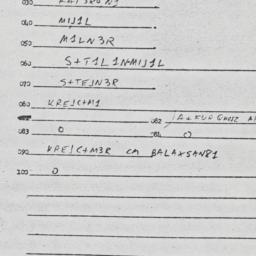 040 MIJ1L
050 M1LN3R
060 S+T1L1NMIJ1L
070 S+TEJN3R
080 KREJC+M1
082
083 0 084 0
090 KREJC+M3R CM BALAXSAN81
100 0